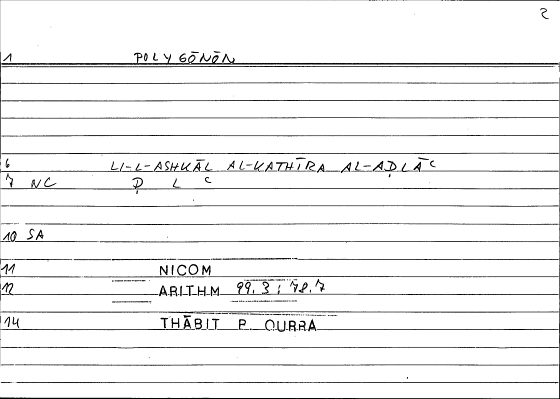 2
1 POLYGŌNŌN
6 LI-L-ASHKĀL AL-KATHĪRA AL-AḌLĀʿ
7 NC Ḍ L ʿ
10 SA
11 NICOM
12 ARITHM 99.3 : 78.7
14 THĀBIT P QURRA